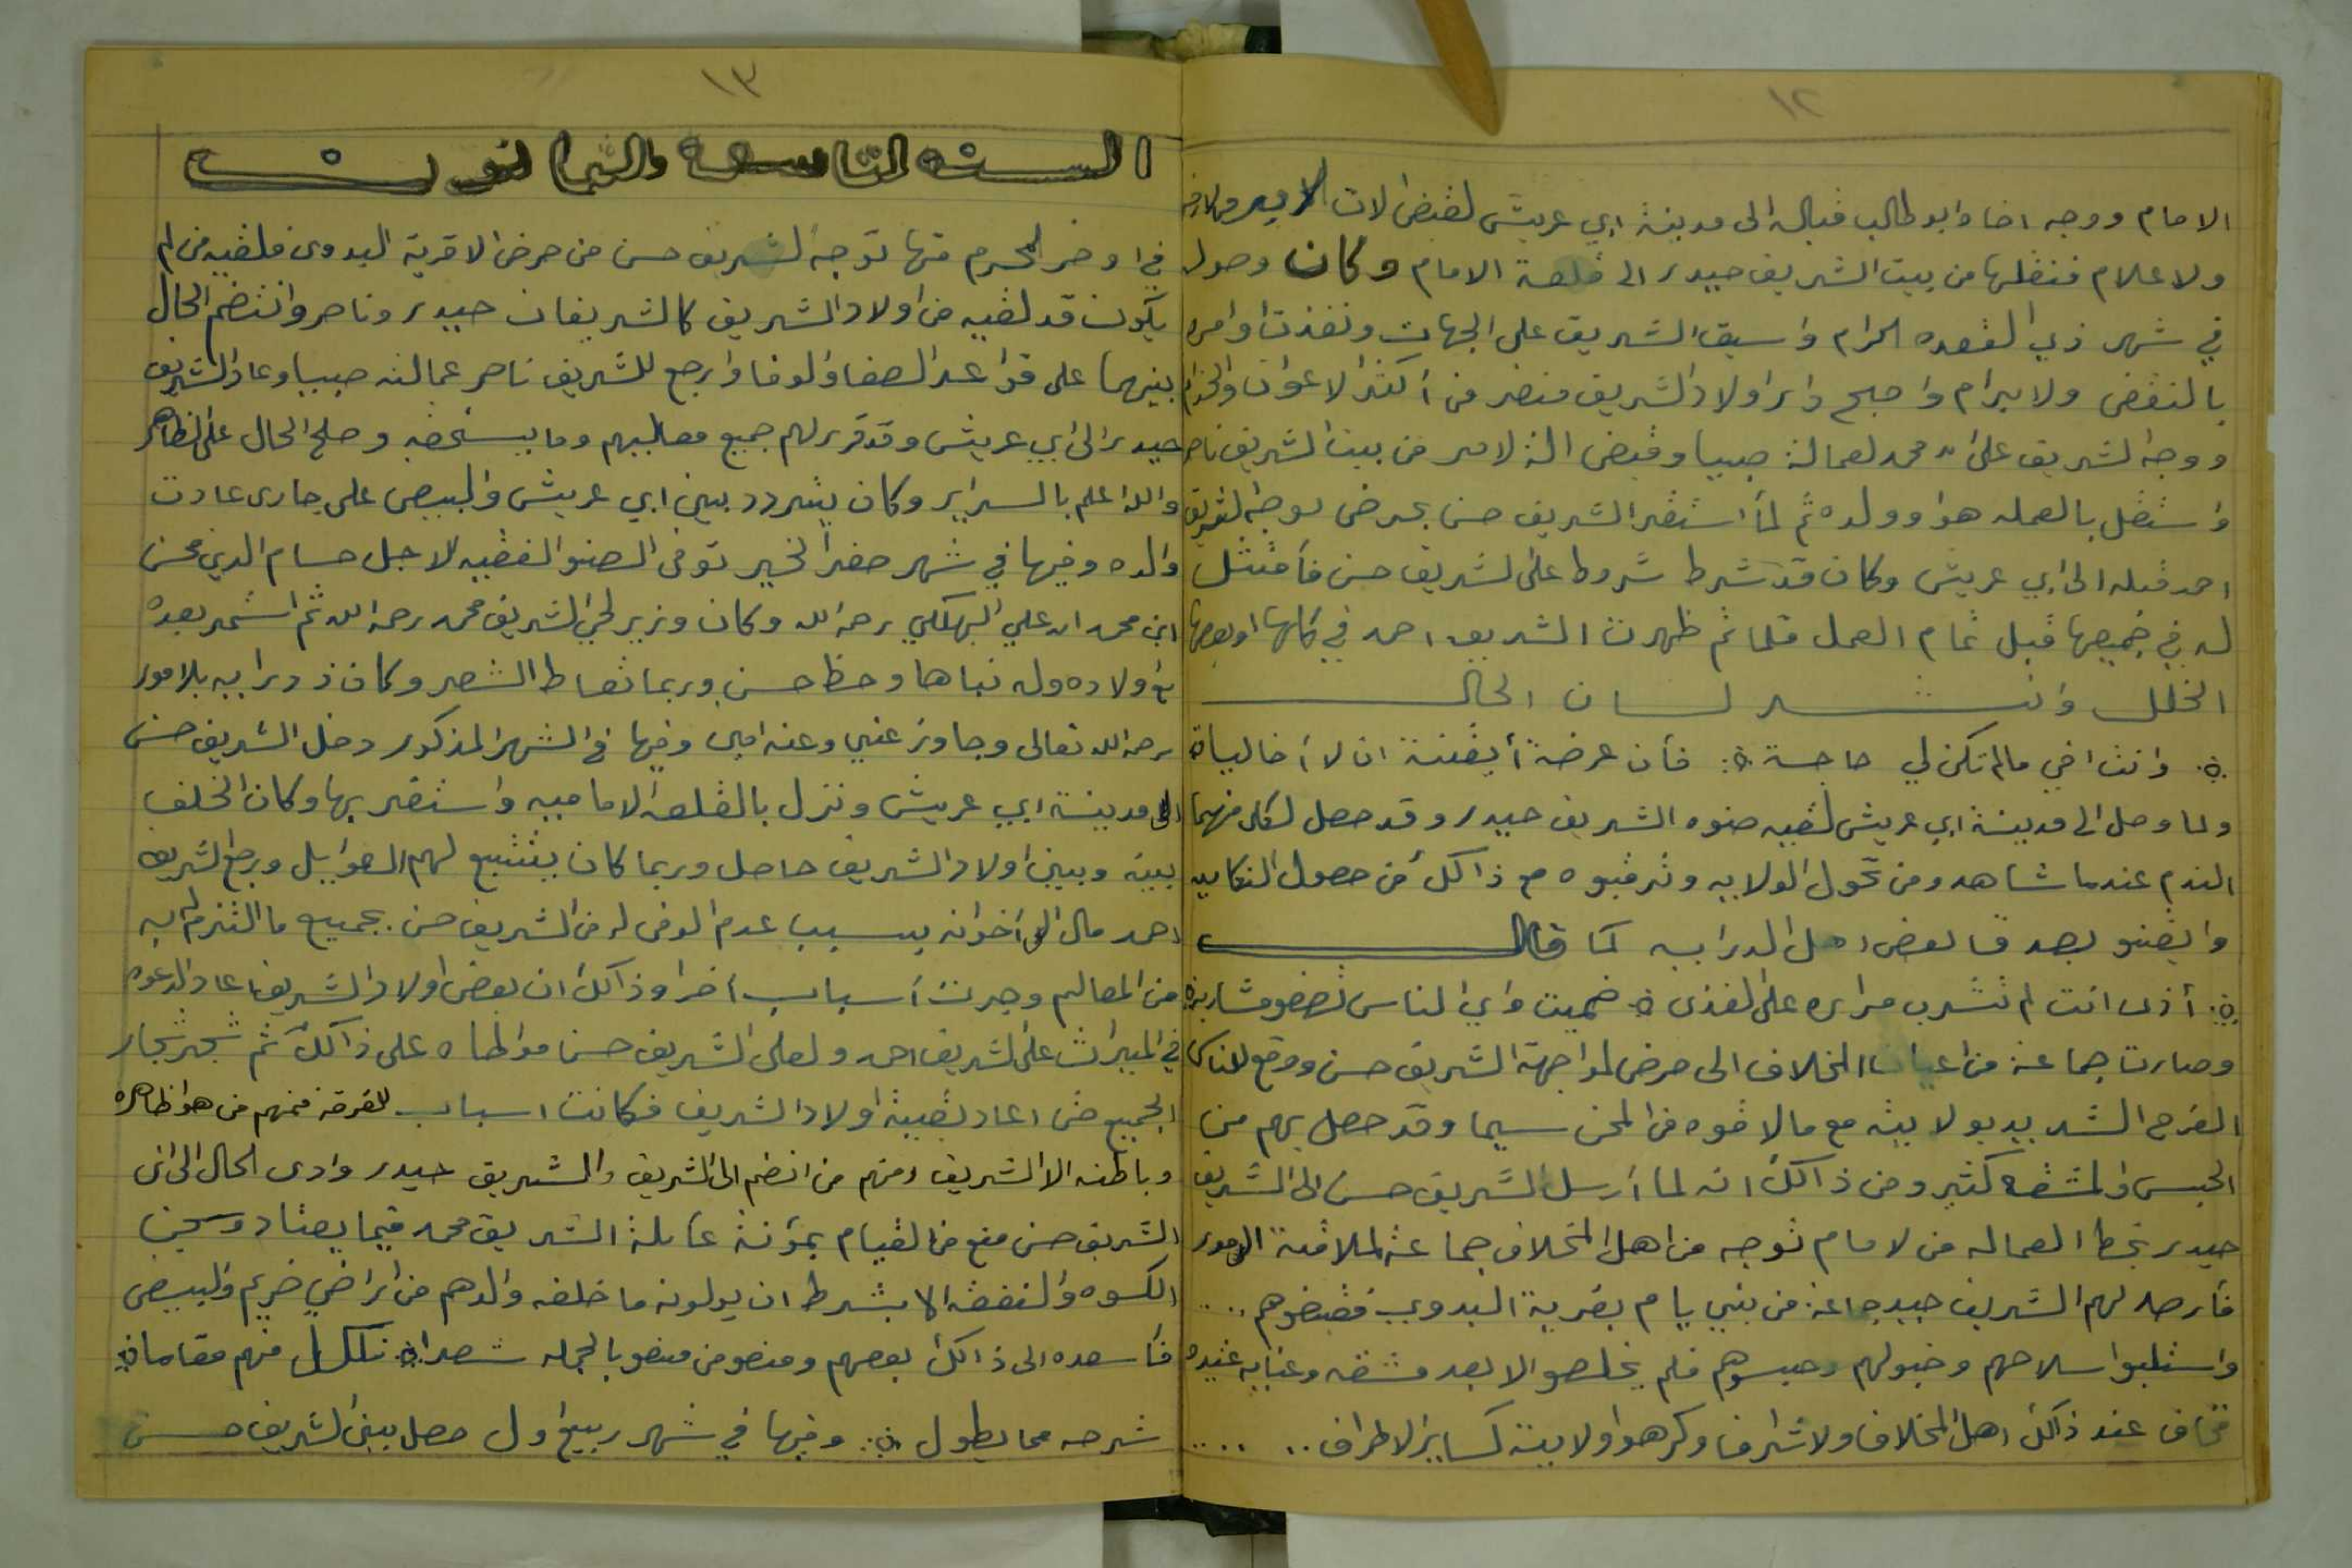 ١٢
الامام ووجه اخاه ابو طالب قباله الى مدينة ابي عريش لقبض الات الامير
ولا علام فنقلها من بيت الشريف حيدر الى قلعة الامام وكان وصول
في شهر ذي القعده الحرام واسبق الشريف على الجهات ونفذت اوامره
بالنقض ولا برام واصبح دابر اولاد الشريف منضر من اكثر الاعوان والخدام
ووجه الشريف علي محمد لعمالة صبيا وقبض الة لامير من بيت الشريف ناصر
واستقل بالعمله هوا وولده ثم لما استقر الشريف حسن بحرض توجه الشريف
احمد قبله الى ابي عريش وكان قد شرط شروط على الشريف حسن فأمتثل
له في جميعها قبل تمام العمل فلما تم ظهرت الشريف احمد في كلها او بعضها
الخلل وانشد لسان الحال
وانت اخي مالم تكن لي حاجة فأن عرضة أيقنة ان لا أخا ليا
ولما وصل الى مدينة ابي عريش لقيه صنوه الشريف حيدر وقد حصل لكل منهما
الندم عندما شاهدو من تحول الولايه وترقبوه مع ذالك من حصول النكايه
وايقنو بصدق بعض اهل الدرايه كما قال
أذى انت لم تشرب مراره على القذى ضميت واي الناس تصفو مشاربة
وصارت جماعة من اعيان المخلاف الى حرض لمواجهة الشريف حسن ووقع للناس
الفرح الشديد بولايته مع مالاقوه من المحن سيما وقد حصل بهم من
الحبس والمشقه كثير ومن ذالك انه لما أرسل الشريف حسن الى الشريف
حيدر بخط العماله من لامام توجه من اهل المخلاف جماعة لملاقية الامور
فأرصد لهم الشريف حيدر جماعة من بني يام بقرية البدوي فقبضوهم ....
واستلبوا سلاحهم وخيولهم وحبسوهم فلم يخلصوا الا بعد مشقه وعنايه عنيده
فخاف عند ذالك اهل المخلاف ولاشراف وكرهوا ولايتة كساير الاطراف .. ....
١٣
السنه التاسعه والثمانون
في اوخر المحرم منها توجه الشريف حسن من حرض الا قرية البدوي فلقيه من لم
يكون قد لقيه من اولاد الشريف كالشريفان حيدر وناصر وانتضم الحال
بينهما على قواعد الصفا والوفا وارجع للشريف ناصر عمالته صبيا وعاد الشريف
حيدر الى ابي عريش وقد قرر لهم جميع معاليهم وما يستحقه وصلح الحال على الظاهر
والله اعلم بالسراير وكان يتردد بين ابي عريش والبيض على جاري عادت
والده وفيها في شهر صفر الخير توفى الصنو الفقيه الاجل حسام الدين محسن
ابن محمد ابن علي البهكلي رحمه الله وكان وزير لخي الشريف محمد رحمه الله ثم استمر بعده
مع اولاده وله نباها وحظ حسن وربما تعاط الشعر وكان ذو درايه بلامور
رحمه الله تعالى وجاوز عني وعنه امين وفيها في الشهر المذكور دخل الشريف حسن
الى مدينة ابي عريش ونزل بالقلعه الاماميه واستقر بها وكان الخلف
بينه وبين اولاد الشريف حاصل وربما كان يتتبع لهم الغوايل ورجع الشريف
احمد مال الى أخوانه بسبب عدم الوفى له من الشريف حسن بجميع ما التزم له به
من المعاليم وجرت أسباب أخرا وذالك ان بعض اولاد الشريف اعاد الدعوه
في الميراث على الشريف احمد ولعلى الشريف حسن مواطاه على ذالك ثم شجر شجار
الجميع حتى اعاد بقيية اولاد الشريف فكانت اسباب للفرقه فمنهم من هوا ظاهره
وباطنه الا الشريف ومنهم من انضم الى الشريف والشريق حيدر وادى الحال الى ان
الشريف حسن منع من القيام بمؤنة عايلة الشريق محمد فيما يعتاد وسجن
الكسوه والنفقه الا بشرط ان يولونه ما خلفه والدهم من اراضي ضريم والبيض
فأسعده الى ذالك بعضهم ومنعو من منعو بالجمله شعرا لكل منهم مقاما
شرحه مما يطول وفيها في شهر ربيع اول حصل بين الشريف حسن